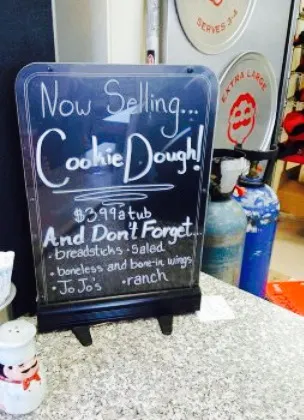 SERVES 3-4
EXTRA LARGE
Now Selling...
Cookie Dough!
$3.99 a tub
And Don't Forget...
• breadsticks • Salad
• boneless and bone-in wings
• JoJo's • ranch